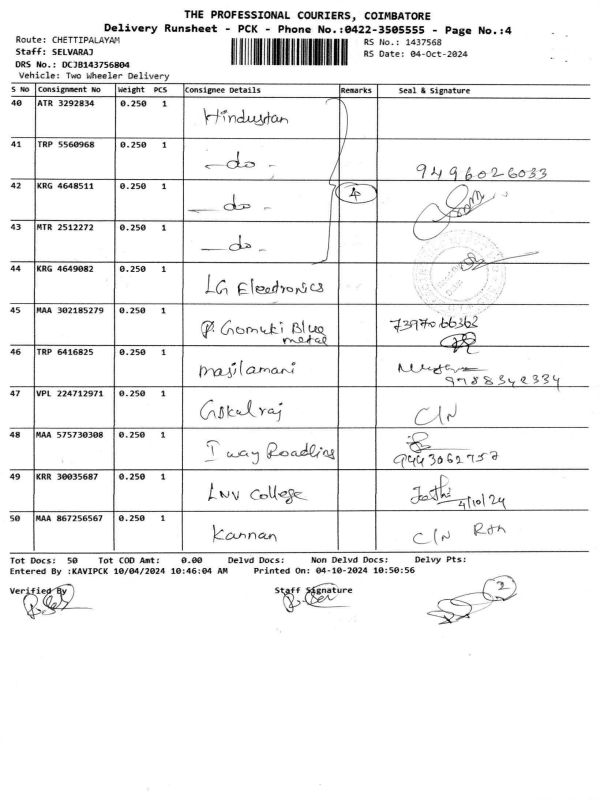 THE PROFESSIONAL COURIERS, COIMBATORE
Delivery Runsheet - PCK - Phone No.:0422-3505555 - Page No.:4
Route: CHETTIPALAYAM
RS No.: 1437568
Staff: SELVARAJ
RS Date: 04-Oct-2024
DRS No.: DCJB143756804
Vehicle: Two Wheeler Delivery
S No Consignment No Weight PCS Consignee Details Remarks Seal & Signature
40 ATR 3292834 0.250 1 Hindustan
41 TRP 5560968 0.250 1 -do- 9496026033
42 KRG 4648511 0.250 1 -do- 4
43 MTR 2512272 0.250 1 -do-
44 KRG 4649082 0.250 1 LG Electronics
45 MAA 302185279 0.250 1 P. Gomuki Blue metal 7397066363
46 TRP 6416825 0.250 1 Masilamani 9788342334
47 VPL 224712971 0.250 1 Gokulraj C/N
48 MAA 575730308 0.250 1 I way Roadlins 9443062757
49 KRR 30035687 0.250 1 LNV College 4/10/24
50 MAA 867256567 0.250 1 Kannan C/N Rtn
Tot Docs: 50 Tot COD Amt: 0.00 Delvd Docs: Non Delvd Docs: Delvy Pts:
Entered By :KAVIPCK 10/04/2024 10:46:04 AM Printed On: 04-10-2024 10:50:56
Verified By Staff Signature 2